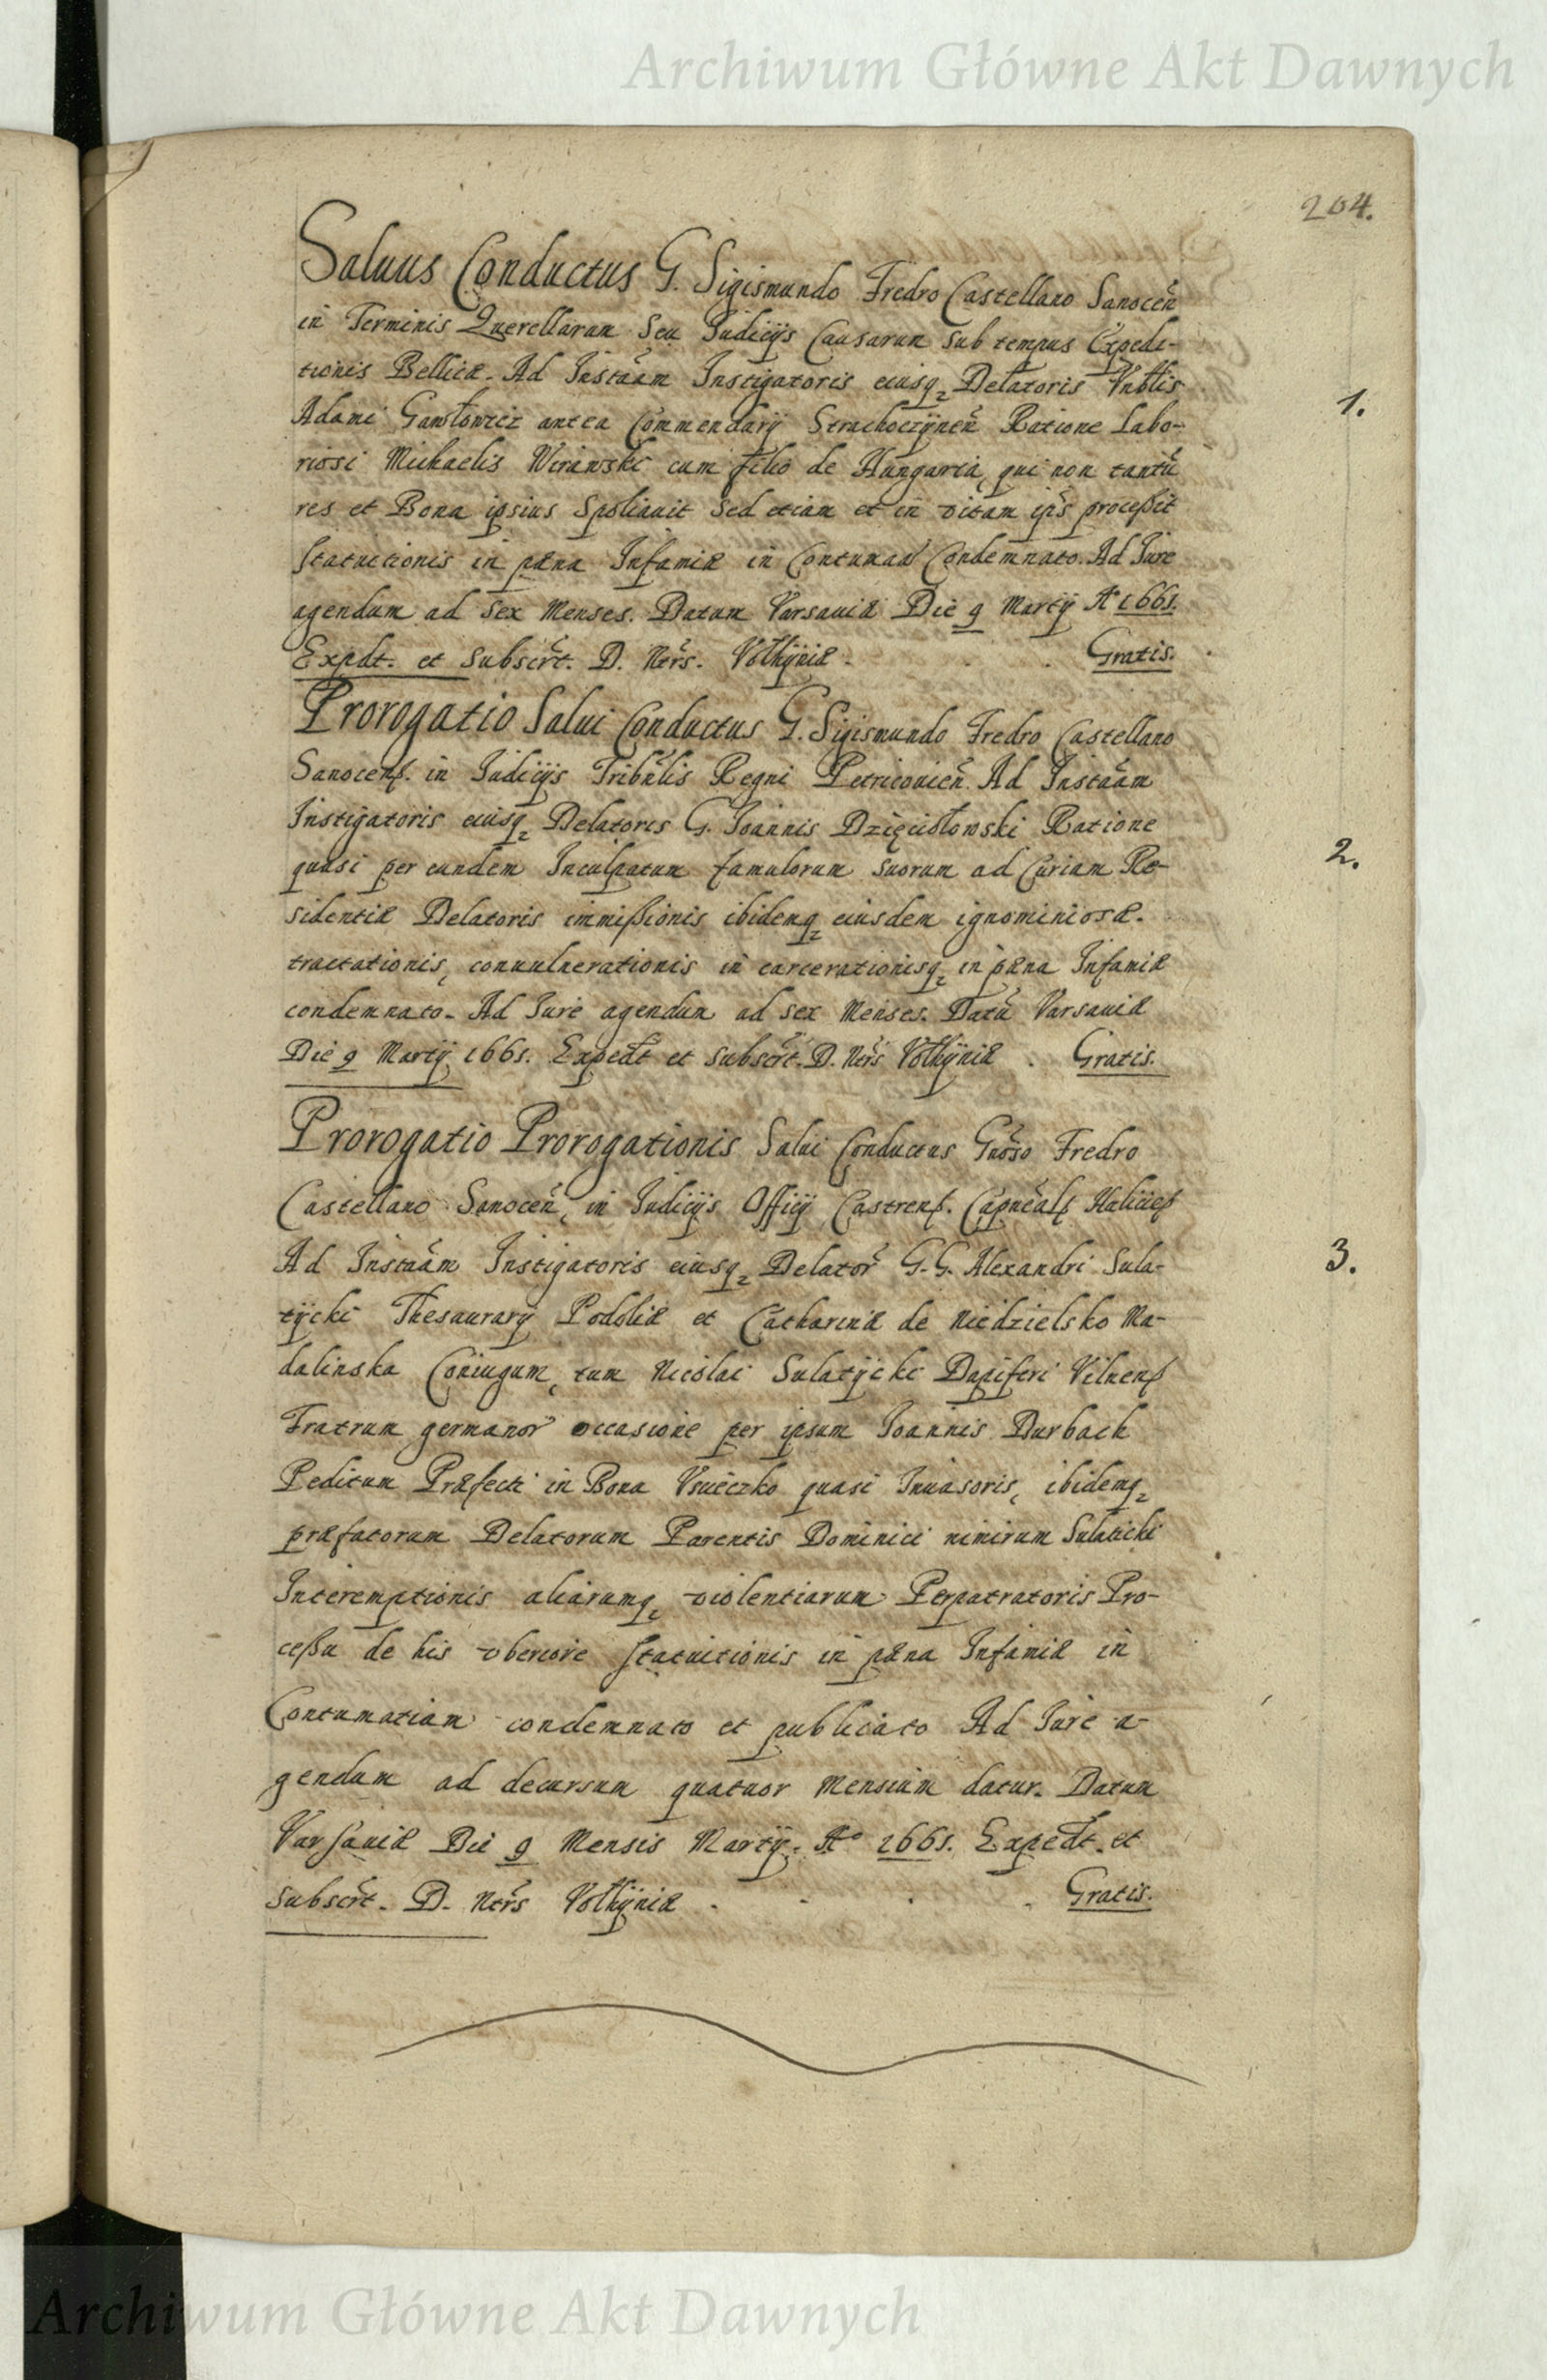 Archiwum Główne Akt Dawnych
204.
Saluus Conductus G. Sigismundo Fredro Castellano Sanoceñ
in Terminis Querellarum Seu Iudicijs Causarum sub tempus Expedi-
tionis Bellicæ. Ad Instãam Instigatoris eiusq; Delatoris Vnblis
Adami Gawłowicz antea Commendarij Strachoczÿneñ Ratione Labo-
1.
riosi Michaelis Wirawski cum filio de Hungaria, qui non tantũ
res et Bona ipsius Spoliauit sed etiam et in vitam ip̃s proceßit
statuitionis in pæna Infamiæ in Contumaã Condemnato. Ad Iure
agendum ad sex Menses. Datum Varsauiæ Die 9 Martij Aº 1661.
Expdt. et Subscr̃t. D. Ner̃s. Vołhÿniæ. Gratis.
Prorogatio Salui Conductus G. Sigismundo Fredro Castellano
Sanocens. in Iudicijs Tribñlis Regni Petricouieñ. Ad Instãam
Instigatoris eiusq; Delatoris G. Ioannis Dzięciołowski Ratione
quasi per eundem Inculpatum famulorum suorum ad Curiam Re-
2.
sidentiæ Delatoris immißionis ibidemq; eiusdem ignominiosæ.
tractationis, conuulnerationis incarcerationisq; in pæna Infamiæ
condemnato. Ad Iure agendum ad sex Menses. Datũ Varsauiæ
Die 9 Martij 1661. Expedt et subscr̃t. D. Ner̃s Vołhÿniæ. Gratis.
Prorogatio Prorogationis Salui Conductus Gnõso Fredro
Castellano Sanoceñ, in Iudicijs Officij Castrens. Capneals Halicies
Ad Instãam Instigatoris eiusq; Delator̃ G.G. Alexandri Sula-
3.
tÿcki Thesaurarij Podoliæ et Catharinæ de Niedzielsko Ma-
dalinska Coniugum, tum Nicolai Sulatÿcki Dapiferi Vilnens
Fratrum germanor̃ occasione per ipsum Ioannis Durbach
Peditum Præfecti in Bona Vsuieczko quasi Inuasoris, ibidemq;
præfatorum Delatorum Parentis Dominici nimirum Sulaticki
Interemptionis aliarumq; violentiarum Perpatratoris Pro-
ceßu de his vberiore statuitionis in pæna Infamiæ in
Contumatiam condemnato et publicato Ad Iure a-
gendum ad decursum quatuor mensium datur. Datum
Varsauiæ Die 9 Mensis Martij. Aº 1661. Expedt. et
subscr̃t. D. Ner̃s Vołhÿniæ. Gratis.
Archiwum Główne Akt Dawnych